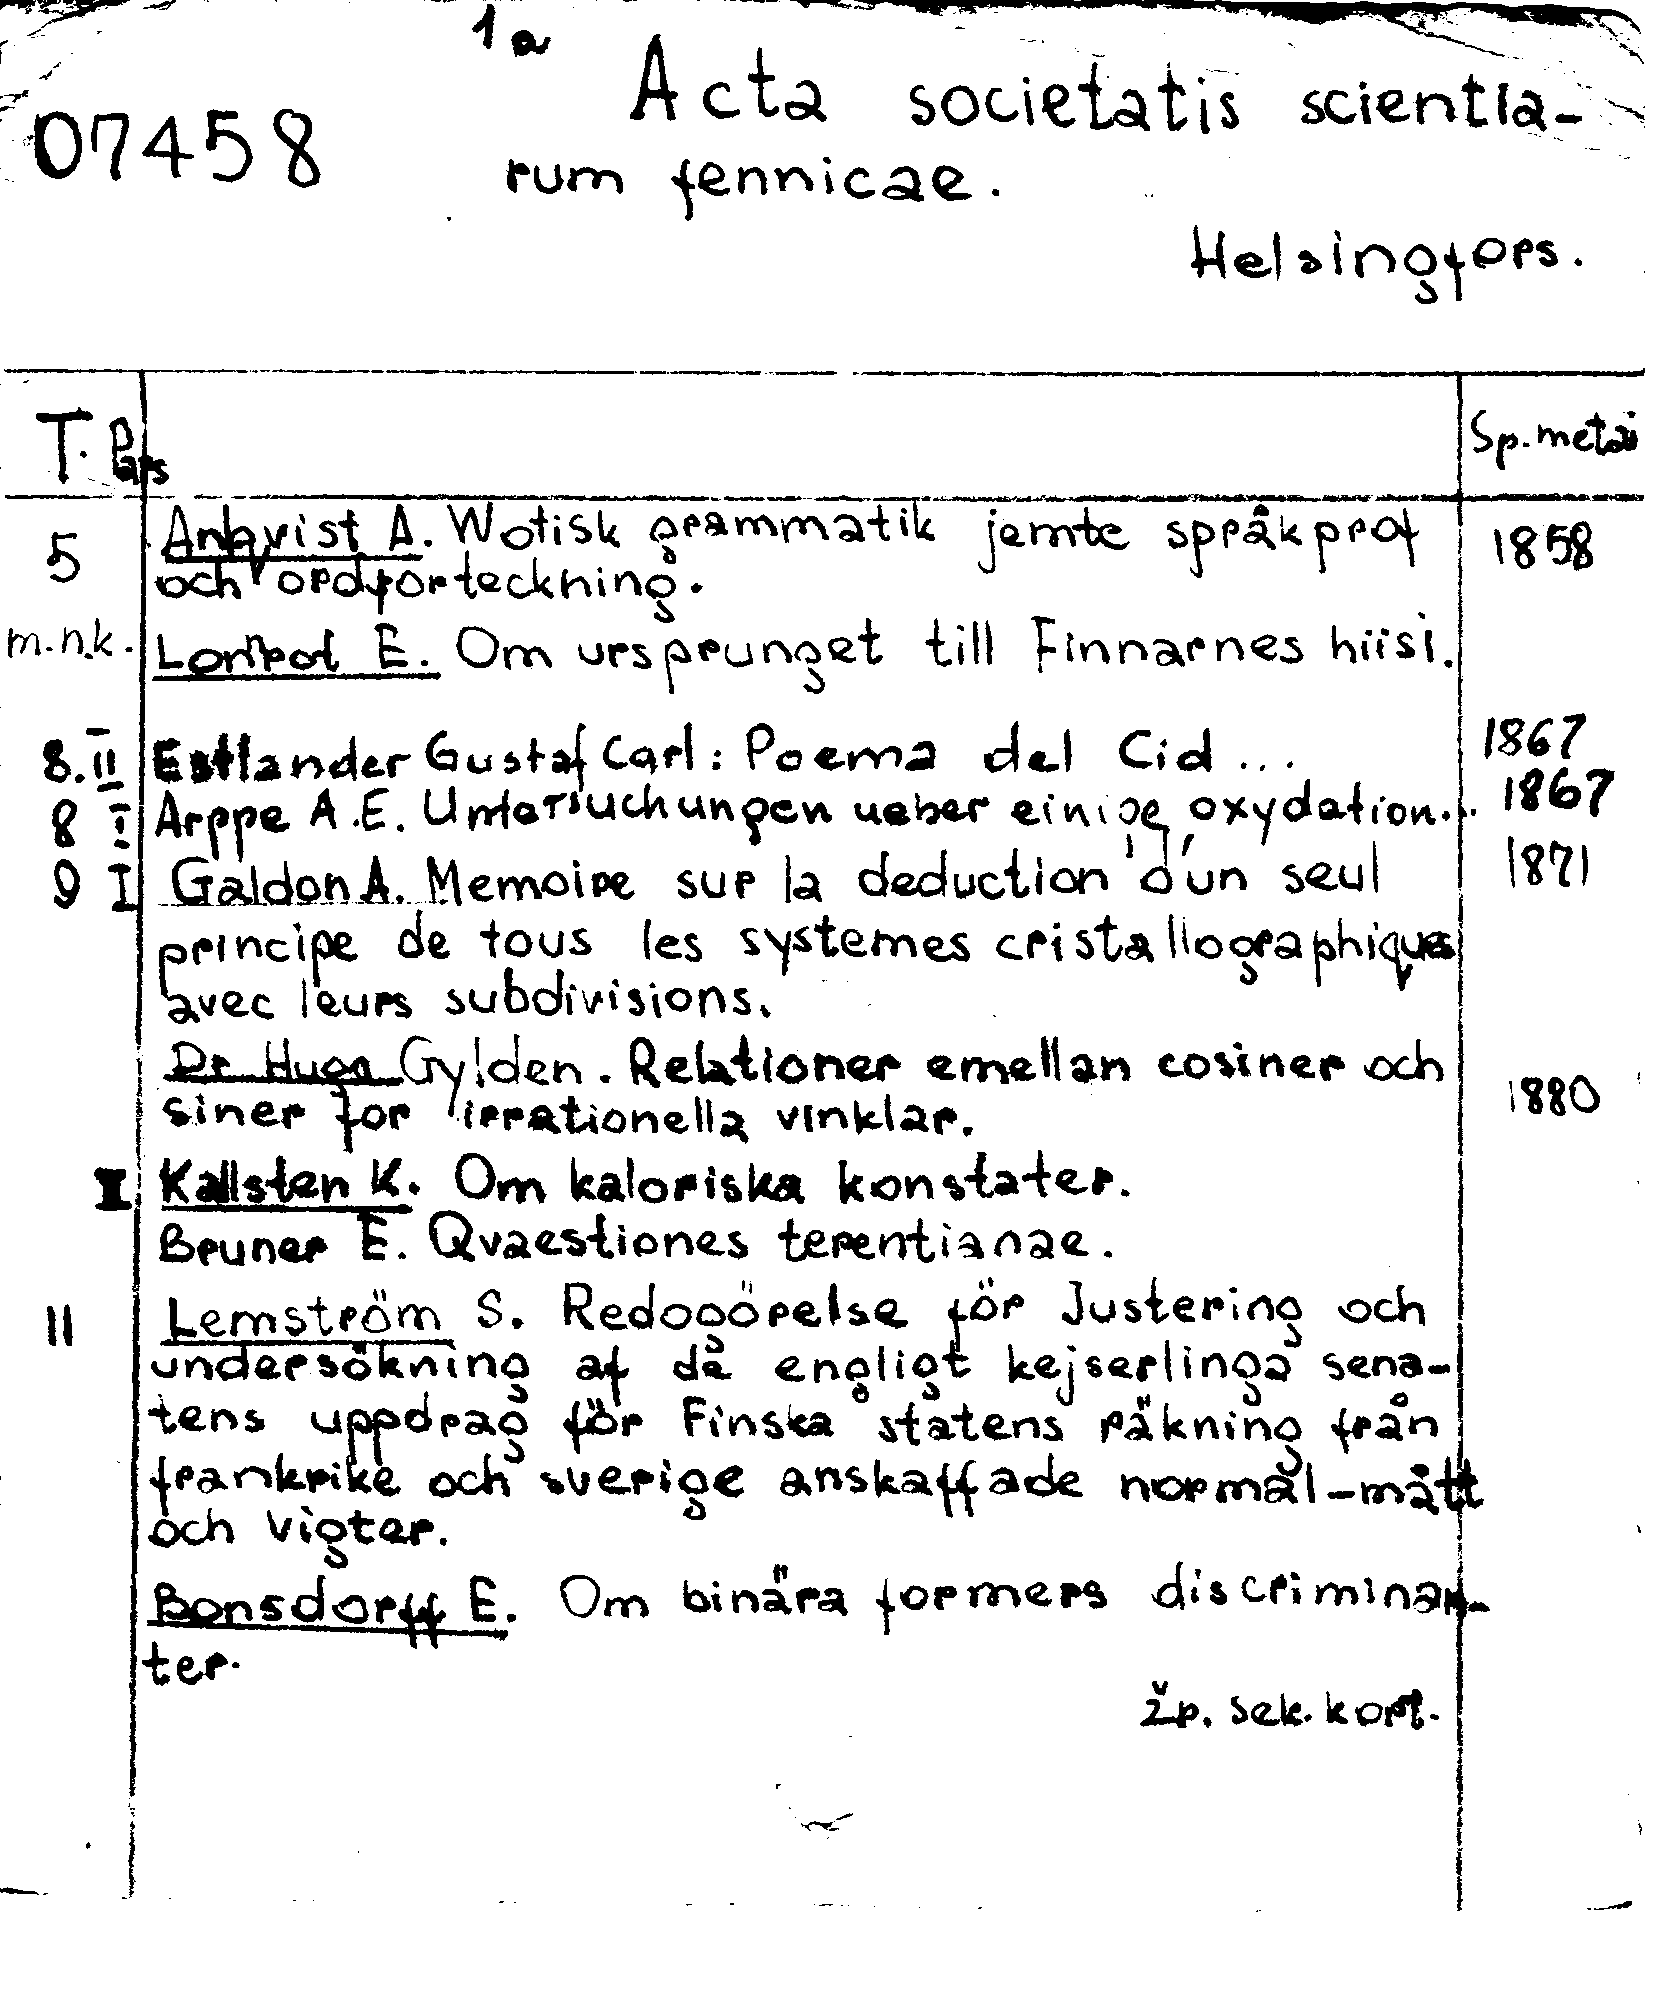 1a
Acta societatis scientia-
07458
rum fennicae.
Helsingfors.
T. Pars
Sp. metai
5 Anqvist A. Wotisk grammatik jemte språkprof 1858
och ordforteckning.
m.n.k. Lonrot E. Om ursprunget till Finnarnes hiisi.
8. II Estlander Gustaf Carl: Poema del Cid ... 1867
8 I Arppe A.E. Untersuchungen ueber einige oxydation... 1867
9 I Galdon A. Memoire sur la deduction d'un seul 1871
principe de tous les systemes cristallographiques
avec leurs subdivisions.
Dr Hugo Gylden. Relationer emellan cosiner och
siner for irrationella vinklar. 1880
II Kallsten K. Om kaloriska konstater.
Bruner E. Qvaestiones terentianae.
11 Lemström S. Redogörelse för Justering och
undersökning af de engligt kejserlinga sena-
tens uppdrag för Finska statens räkning från
frankrike och sverige anskaffade normal-mått
och vigter.
Bonsdorff E. Om binära formers discriminan-
ter.
žr. sek. kort.